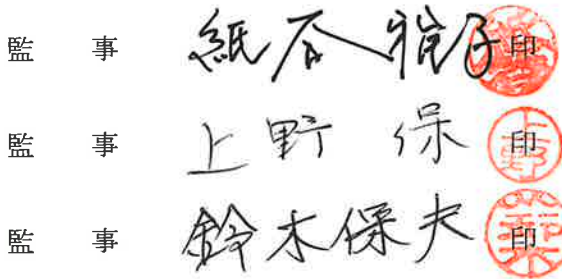 監 事 紙 子 印
監 事 上野 保 印
監 事 鈴木保夫 印